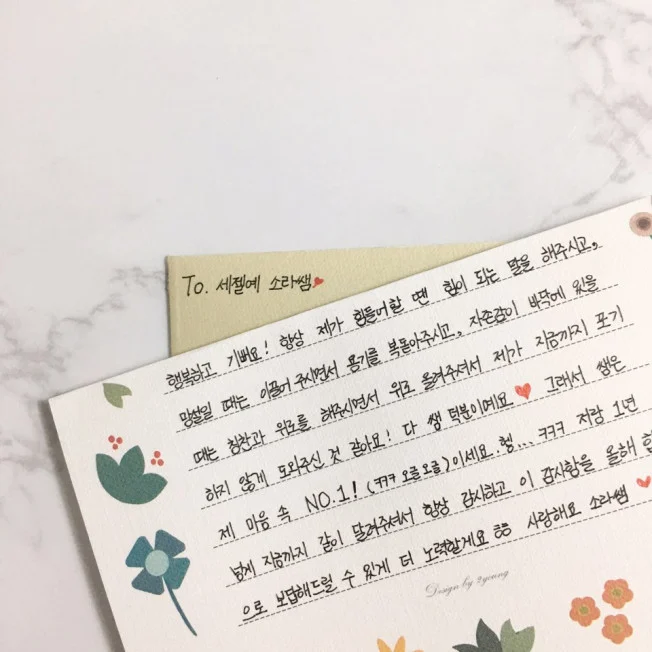 To. 세젤예 소라쌤
행복하고 기뻐요! 항상 제가 힘들어할 땐 힘이 되는 말을 해주시고,
망설일 때는 이끌어주시면서 용기를 북돋아주시고, 자존감이 바닥에 있을
때는 칭찬과 위로를 해주시면서 위로 올려주셔서 제가 지금까지 포기
하지 않게 도와주신 것 같아요! 다 쌤 덕분이예요 그래서 쌤은
제 마음 속 NO.1! (ㅋㅋㅋ 오글오글)이세요. 헿... ㅋㅋㅋ 저랑 1년
넘게 지금까지 같이 달려주셔서 항상 감사하고 이 감사함을 올해 합
으로 보답해드릴 수 있게 더 노력할게요 사랑해요 소라쌤
Design by 2young